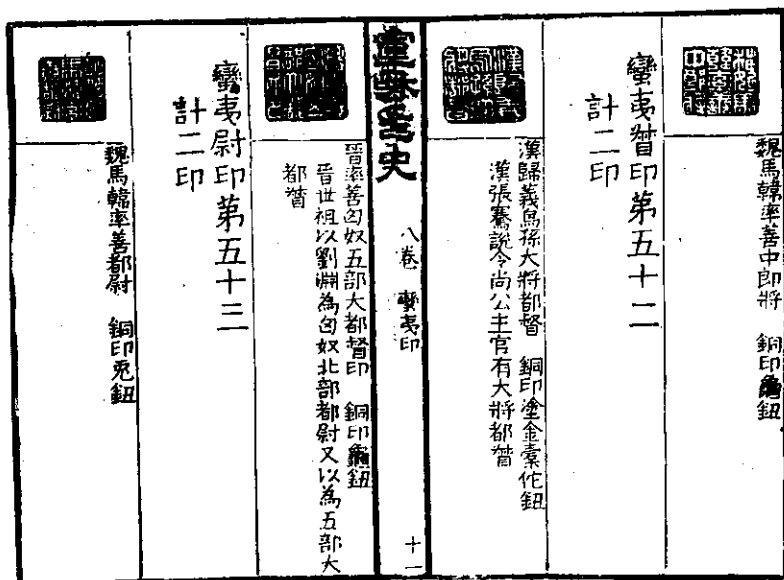 魏馬韓率善中郎將　銅印龜鈕
蠻夷督印第五十二
計二印
漢歸義烏孫大將都督　銅印塗金橐佗鈕
漢張騫說令尚公主官有大將都督
史
八卷　蠻夷印
十一
晉率善匈奴五部大都督印　銅印龜鈕
晉世祖以劉淵為匈奴北部都尉又以為五部大
都督
蠻夷尉印第五十三
計二印
魏馬韓率善都尉　銅印兎鈕